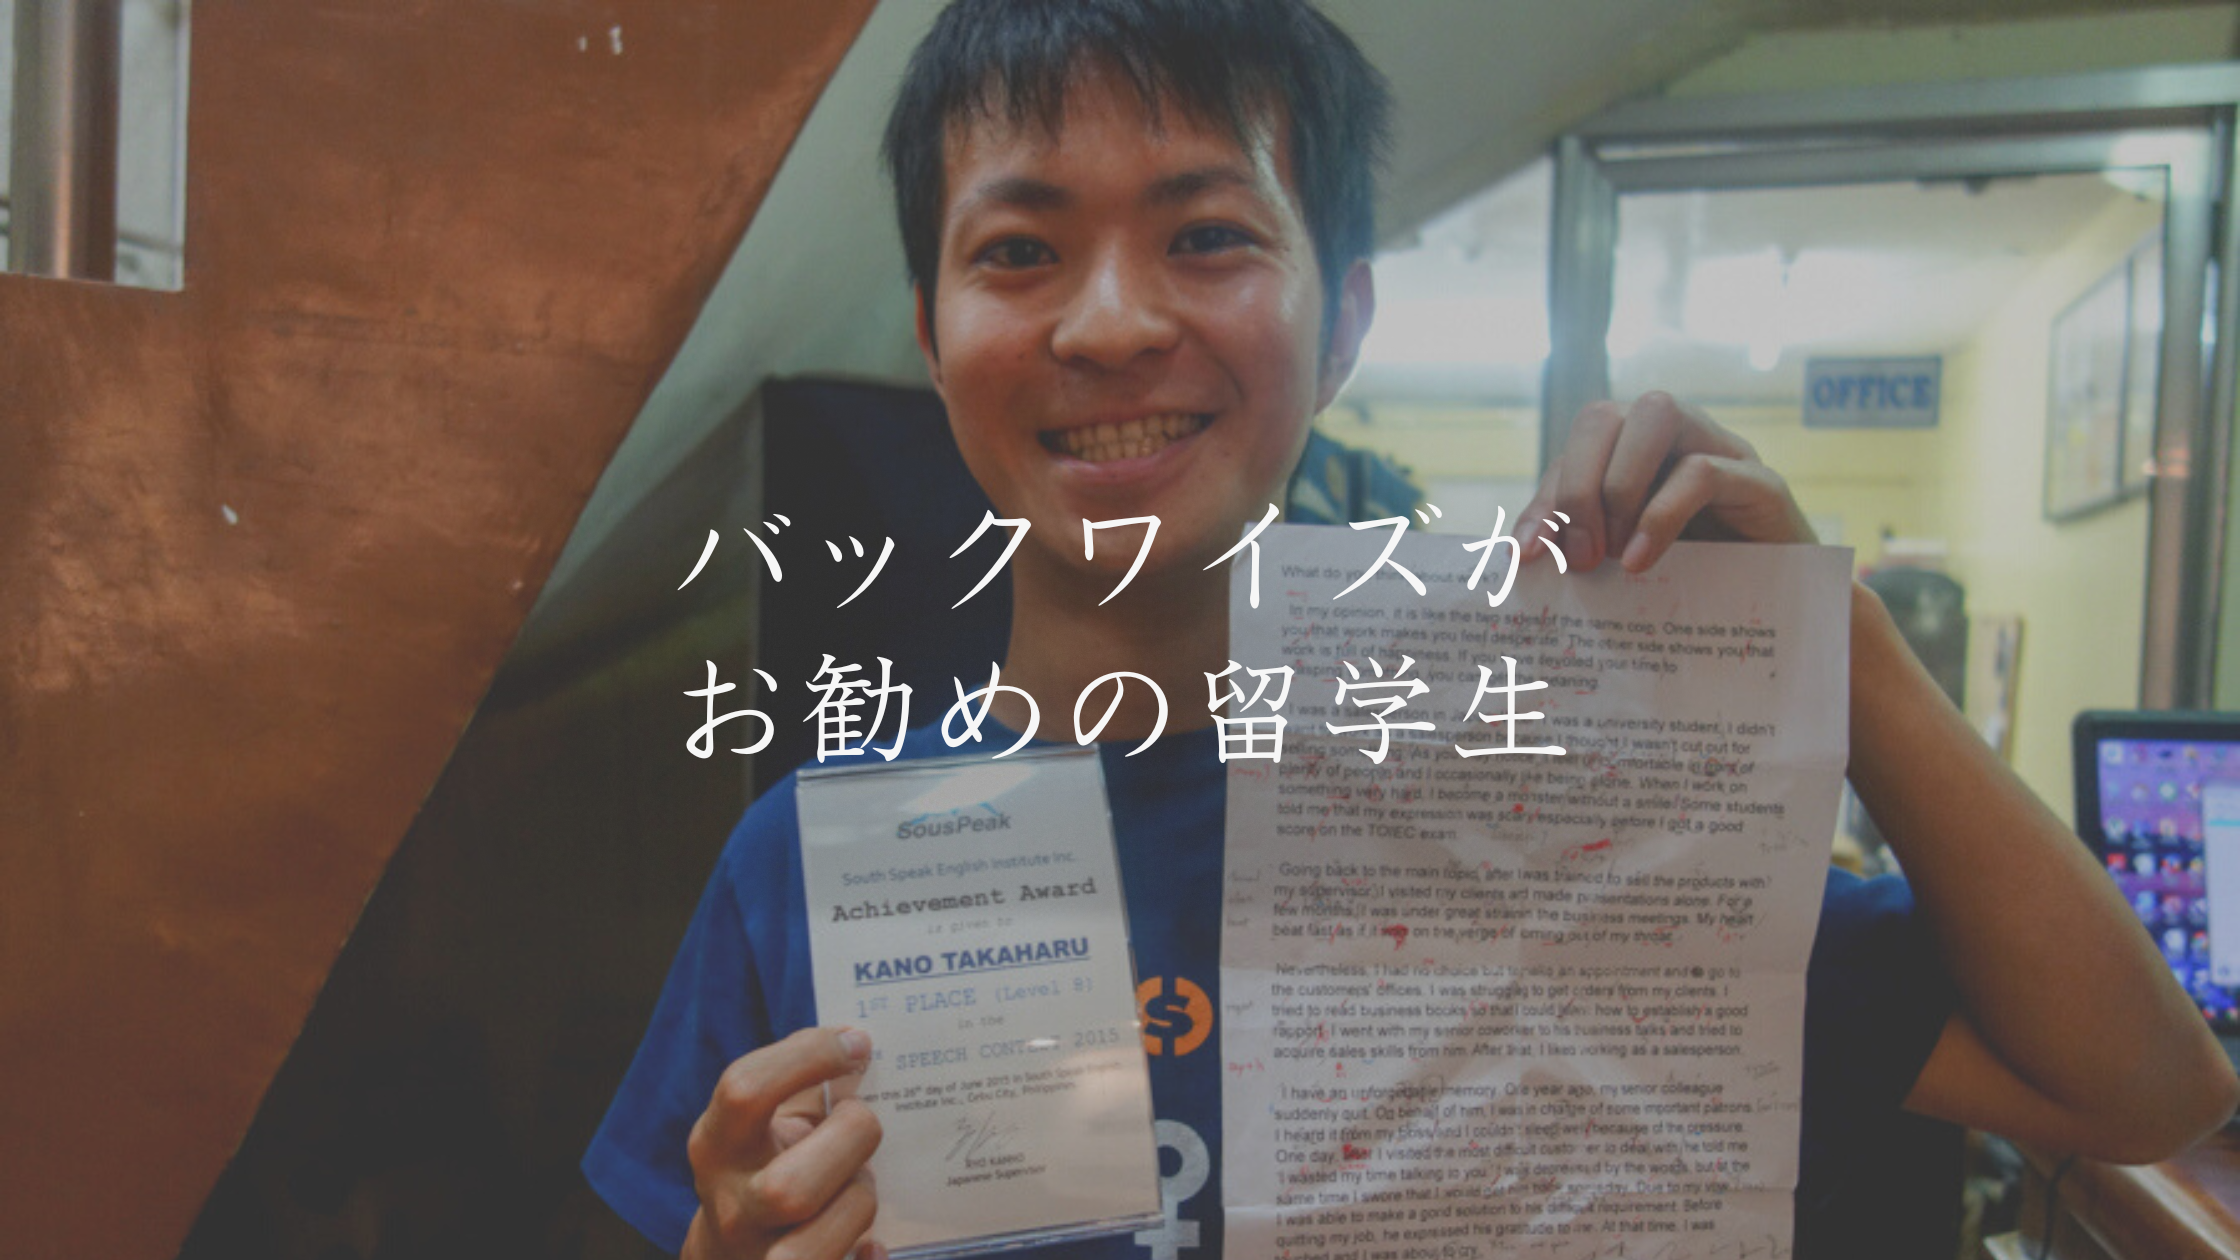 バックワイズが
お勧めの留学生
OFFICE
SousPeak
South Speak English Institute Inc.
Achievement Award
is given to
KANO TAKAHARU
1ST PLACE (Level 8)
in the
SPEECH CONTEST 2015
this 26th day of June 2015 in South Speak English
Institute Inc., Cebu City, Philippines.
Japanese Supervisor
What do you think about work?
In my opinion, it is like the two sides of the same coin. One side shows
you that work makes you feel desperate. The other side shows you that
work is full of happiness. If you have devoted your time to
you can get the meaning.
I was a salesperson in was a university student, I didn't
salesperson because I thought I wasn't cut out for
selling something. As you may notice, I feel uncomfortable in front of
plenty of people and I occasionally like being alone. When I work on
something very hard, I become a monster without a smile. Some students
told me that my expression was scary especially before I got a good
score on the TOIEC exam.
Going back to the main topic, after I was trained to sell the products with
my supervisor, I visited my clients and made presentations alone. For a
few months, I was under great strain in the business meetings. My heart
beat fast as if it was on the verge of coming out of my throat.
Nevertheless, I had no choice but to make an appointment and go to
the customers' offices. I was struggling to get orders from my clients. I
tried to read business books so that I could learn how to establish a good
rapport. I went with my senior coworker to his business talks and tried to
acquire sales skills from him. After that, I liked working as a salesperson.
I have an unforgettable memory. One year ago, my senior colleague
suddenly quit. On behalf of him, I was in charge of some important patrons.
I heard it from my boss and I couldn't sleep well because of the pressure.
One day, I visited the most difficult customer to deal with, he told me
"I wasted my time talking to you." I was depressed by the words, but at the
same time I swore that I would get him back someday. Due to my
I was able to make a good solution to his difficult requirement. Before
quitting my job, he expressed his gratitude to me. At that time, I was
touched and I was about to cry.